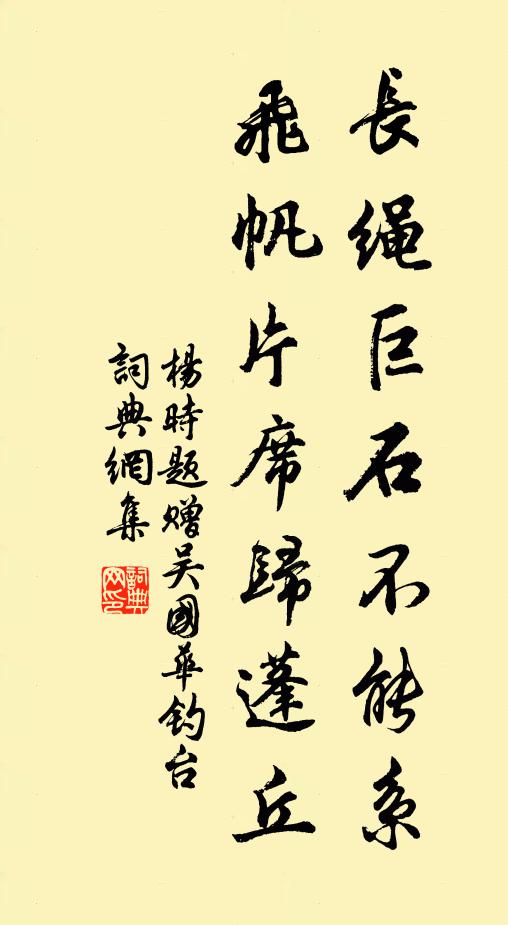 长绳巨石不能系
飛帆片席歸蓬丘
楊時题赠吴國華钓台
詞典網集
詞典網印